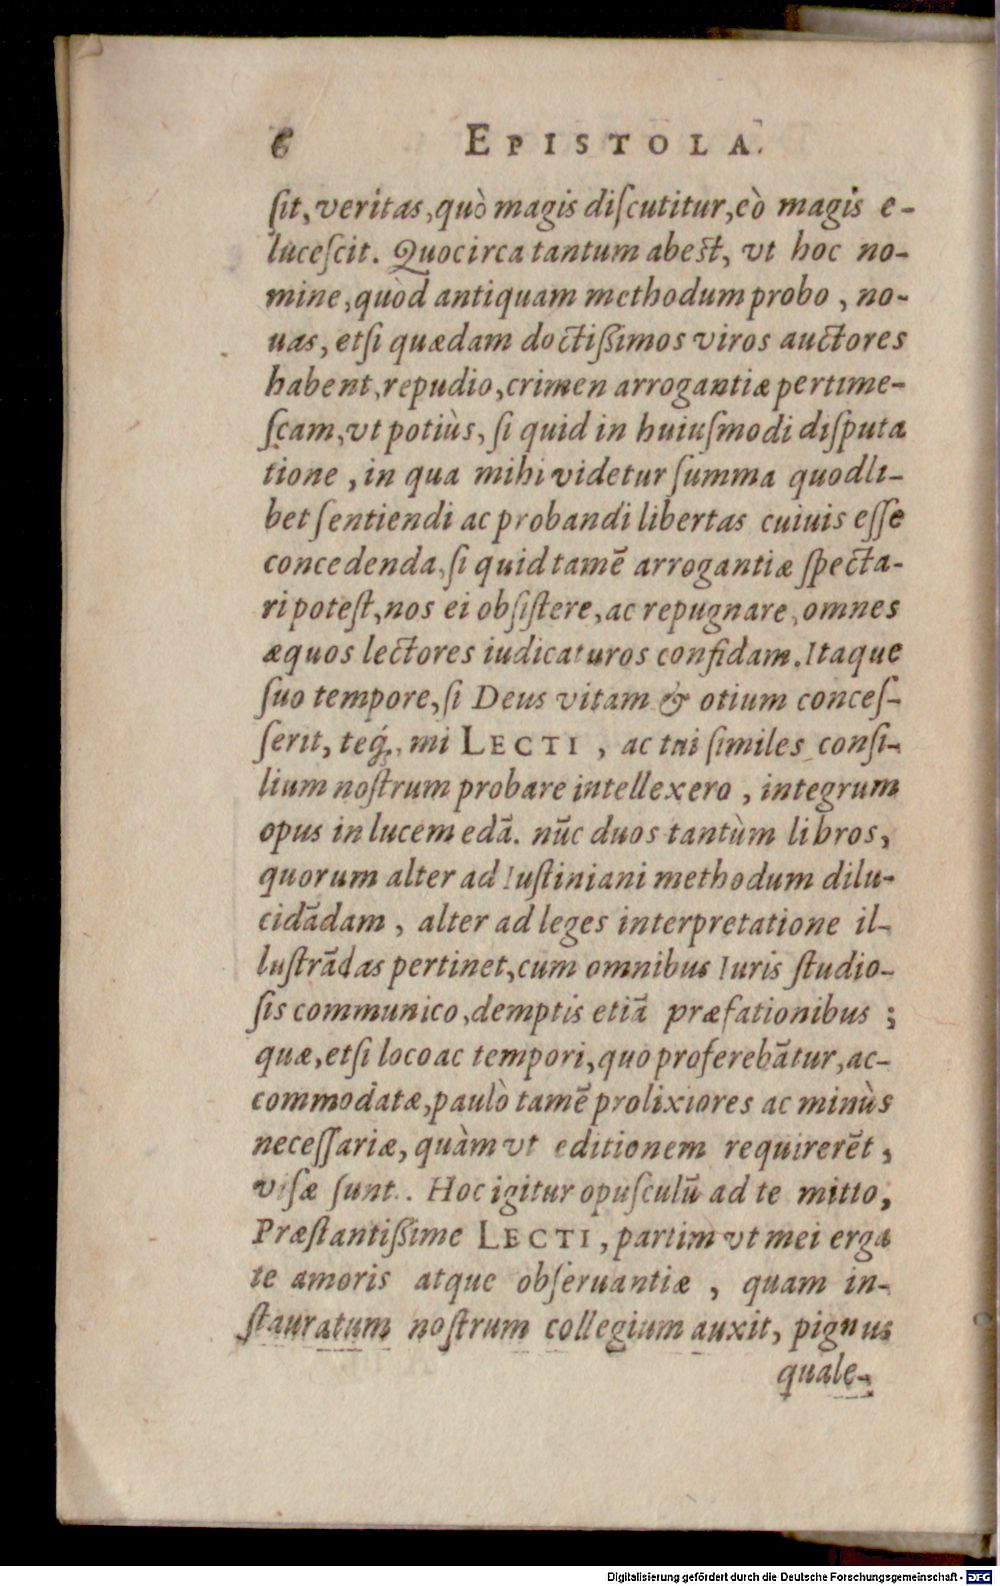 6 EPISTOLA.
ſit, veritas, quò magis diſcutitur, eò magis e-
luceſcit. Quocirca tantum abeſt, vt hoc no-
mine, quòd antiquam methodum probo, no-
uas, etſi quædam doctißimos viros auctores
habent, repudio, crimen arrogantiæ pertime-
ſcam, vt potiùs, ſi quid in huiuſmodi diſputa
tione, in qua mihi videtur ſumma quodli-
bet ſentiendi ac probandi libertas cuiuis eſſe
concedenda, ſi quid tamē arrogantiæ ſpecta-
ri poteſt, nos ei obſiſtere, ac repugnare, omnes
æquos lectores iudicaturos confidam. Itaque
ſuo tempore, ſi Deus vitam & otium conceſ-
ſerit, teq́;, mi LECTI, ac tui ſimiles conſi-
lium noſtrum probare intellexero, integrum
opus in lucem edā. nūc duos tantùm libros,
quorum alter ad Iuſtiniani methodum dilu-
cidādam, alter ad leges interpretatione il-
luſtrādas pertinet, cum omnibus Iuris ſtudio-
ſis communico, demptis etiā præfationibus;
quæ, etſi loco ac tempori, quo proferebātur, ac-
commodatæ, paulò tamē prolixiores ac minùs
neceſſariæ, quàm vt editionem requirerēt,
viſæ ſunt. Hoc igitur opuſculū ad te mitto,
Præſtantißime LECTI, partim vt mei erga
te amoris atque obſeruantiæ, quam in-
ſtauratum noſtrum collegium auxit, pignus
quale-
Digitalisierung gefördert durch die Deutsche Forschungsgemeinschaft - DFG